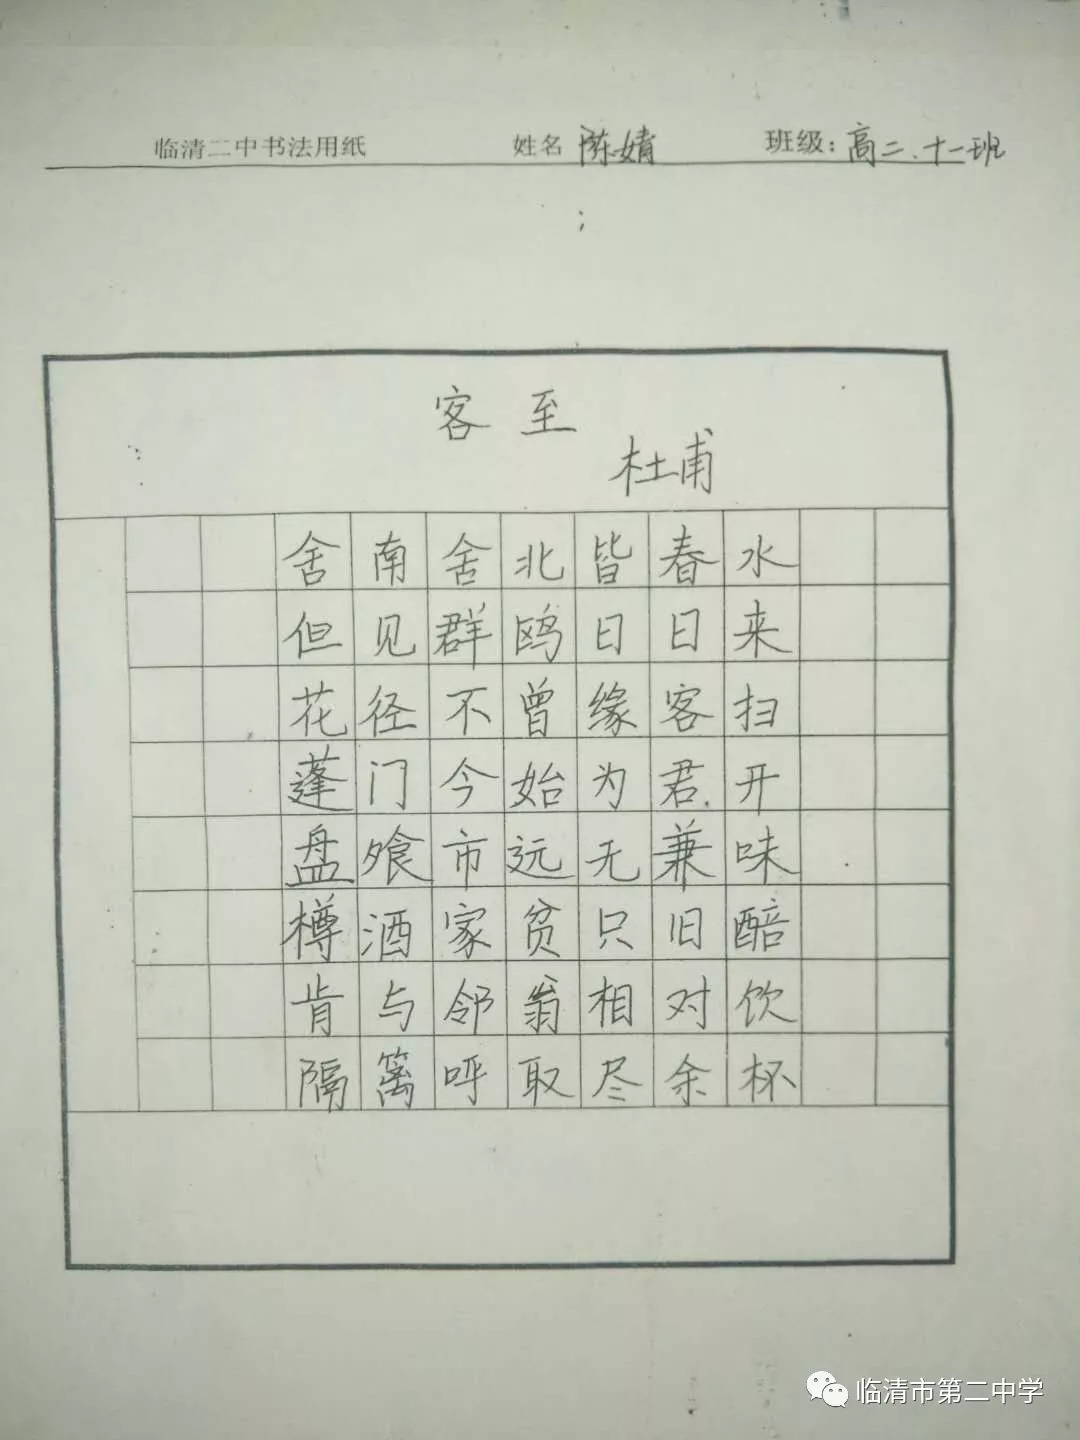 临清二中书法用纸 姓名 陈婧 班级：高二、十一班
客至
杜甫
舍南舍北皆春水
但见群鸥日日来
花径不曾缘客扫
蓬门今始为君开
盘飧市远无兼味
樽酒家贫只旧醅
肯与邻翁相对饮
隔篱呼取尽余杯
临清市第二中学